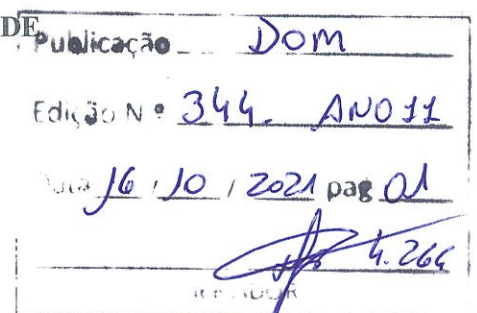 DE
Publicação DOM
Edição Nº 344. ANO 11
Data 16 / 10 / 2021 pag 01
4.264